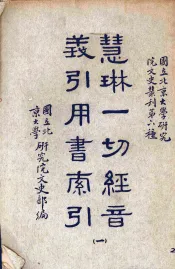 國立北京大學研究
院文史叢刊第六種
慧琳一切經音
義引用書索引
(一)
國立北
京大學
研究院文史部編